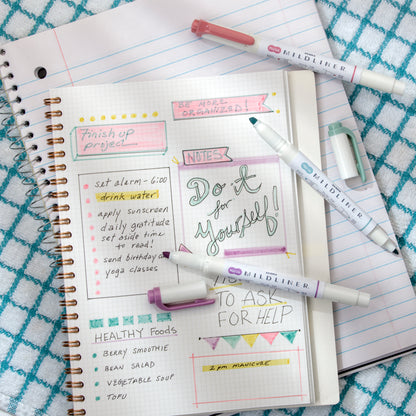 MILDLINER
BE MORE
ORGANIZED!
finish up
project
NOTES
set alarm - 6:00
drink water
apply sunscreen
daily gratitude
set aside time
to read!
send birthday
yoga classes
Do it
for
Yourself!
MILDLINER
MILDLINER
TO ASK
FOR HELP
HEALTHY FOODS
BERRY SMOOTHIE
BEAN SALAD
VEGETABLE SOUP
TOFU
2pm MANICURE